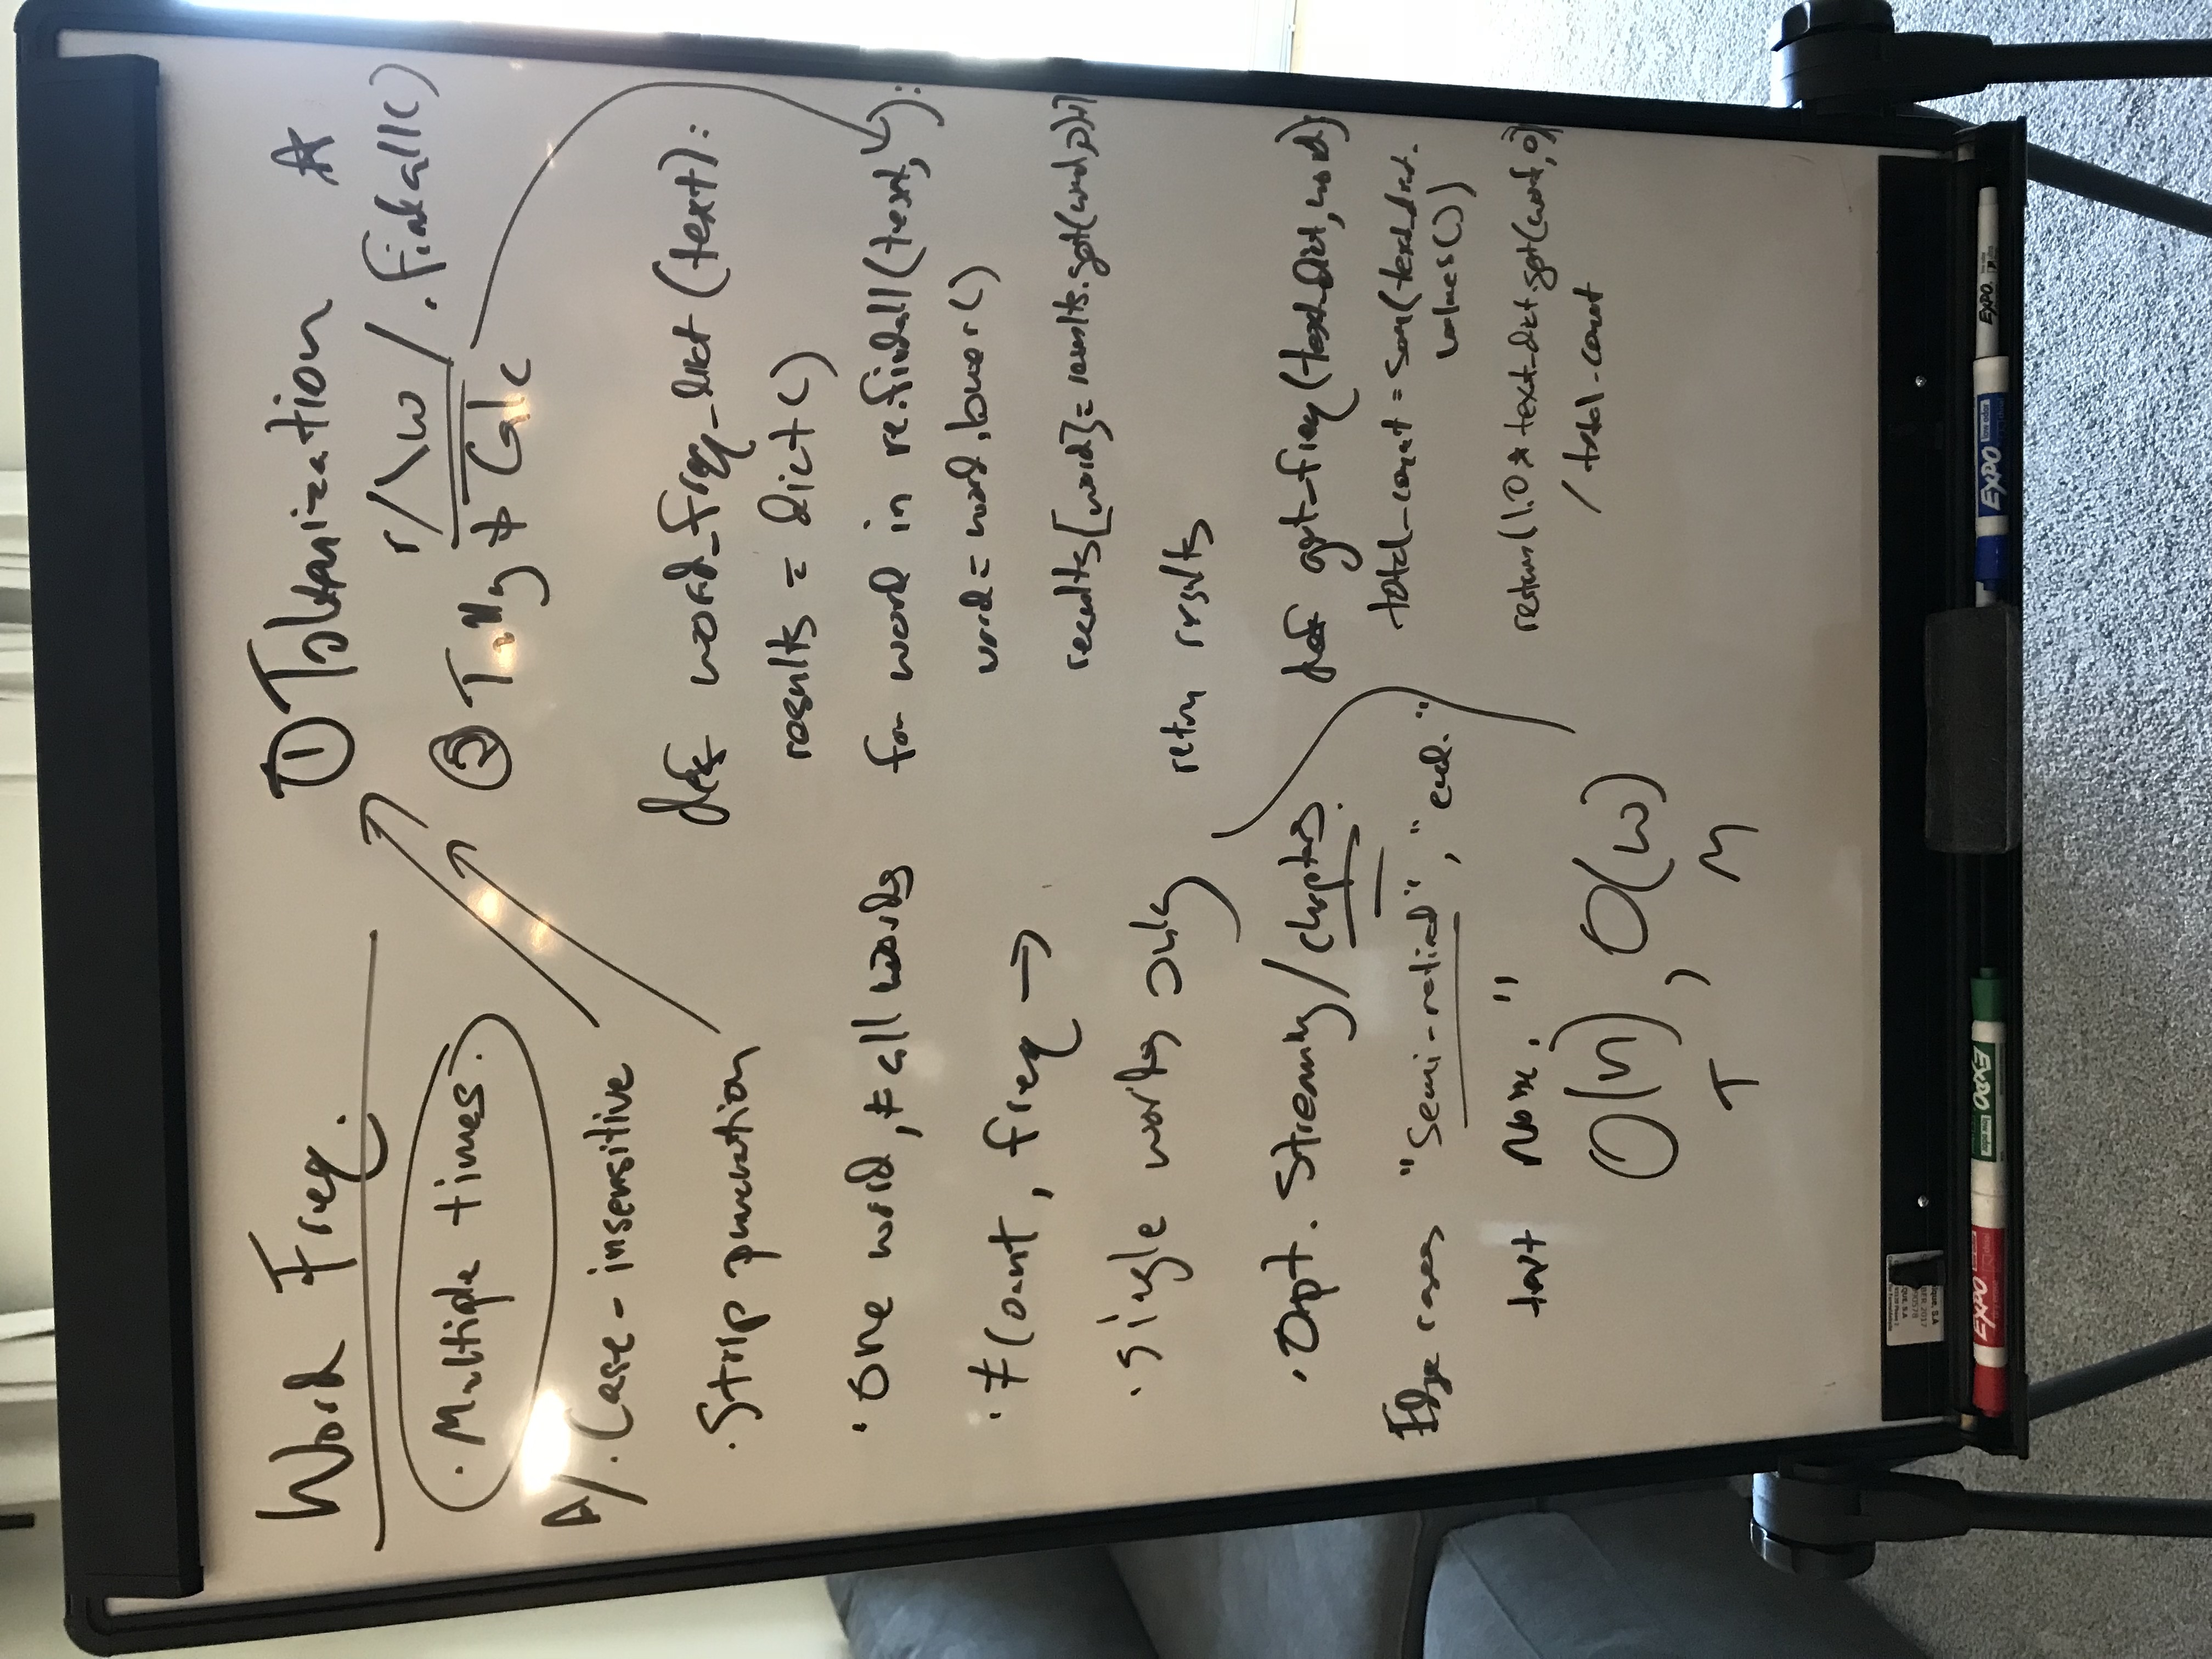 Word Freq.
· Multiple times.
A/. Case-insensitive
· Strip puncuation
· One word, ≠ all words
· ≠ Count, freq →
· Single words only
· Opt. Streaming/chapters.
Edge cases "Semi-retired", "end."
text None. "
O(n), O(w)
T M
① Tokenization ☆
r/\w/.findall()
② Tally & Calc
def word_freq_dict (text):
results = dict()
for word in re.findall(text, ):
word = word.lower()
results[word] = results.get(word,0)+1
return results
def get_freq(text_dict, word):
total_count = sum(text_dict.
values())
return (1.0 * text_dict.get(word, 0)
/ total_count
EXPO
EXPO
low odor
EXPO low odor
EXPO